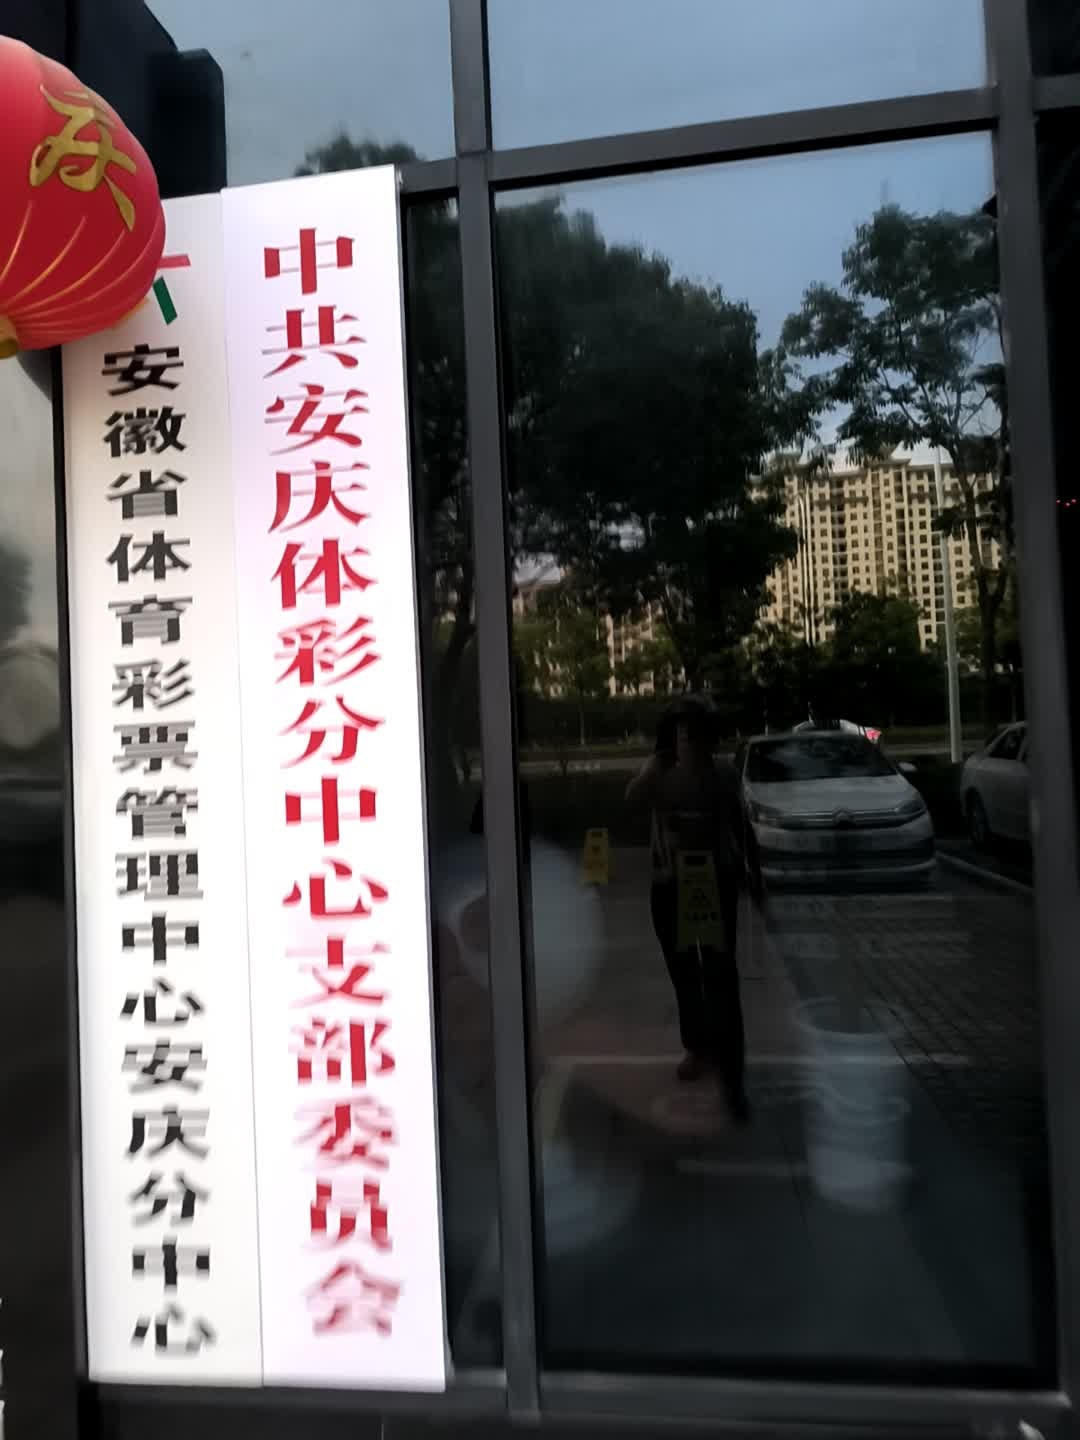 庆
安徽省体育彩票管理中心安庆分中心
中共安庆体彩分中心支部委员会